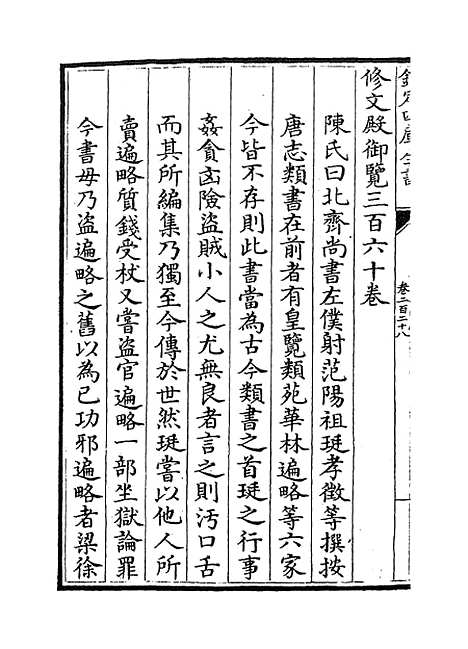 欽定四庫全書
卷二百二十八
修文殿御覽三百六十卷
陳氏曰北齊尚書左僕射范陽祖珽孝徵等撰按
唐志類書在前者有皇覽類苑華林遍略等六家
今皆不存則此書當為古今類書之首珽之行事
姦貪凶險盜賊小人之尤無良者言之則汚口舌
而其所編集乃獨至今傳於世然珽嘗以他人所
賣遍略質錢受杖又嘗盜官遍略一部坐獄論罪
今書毋乃盜遍略之舊以為已功邪遍略者梁徐